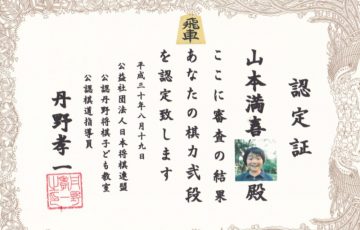 飛車
認定証
山本満喜殿
ここに審査の結果
あなたの棋力弐段
を認定致します
平成三十年八月十九日
公益社団法人日本将棋連盟
公認丹野将棋子ども教室
公認棋道指導員
丹野孝一